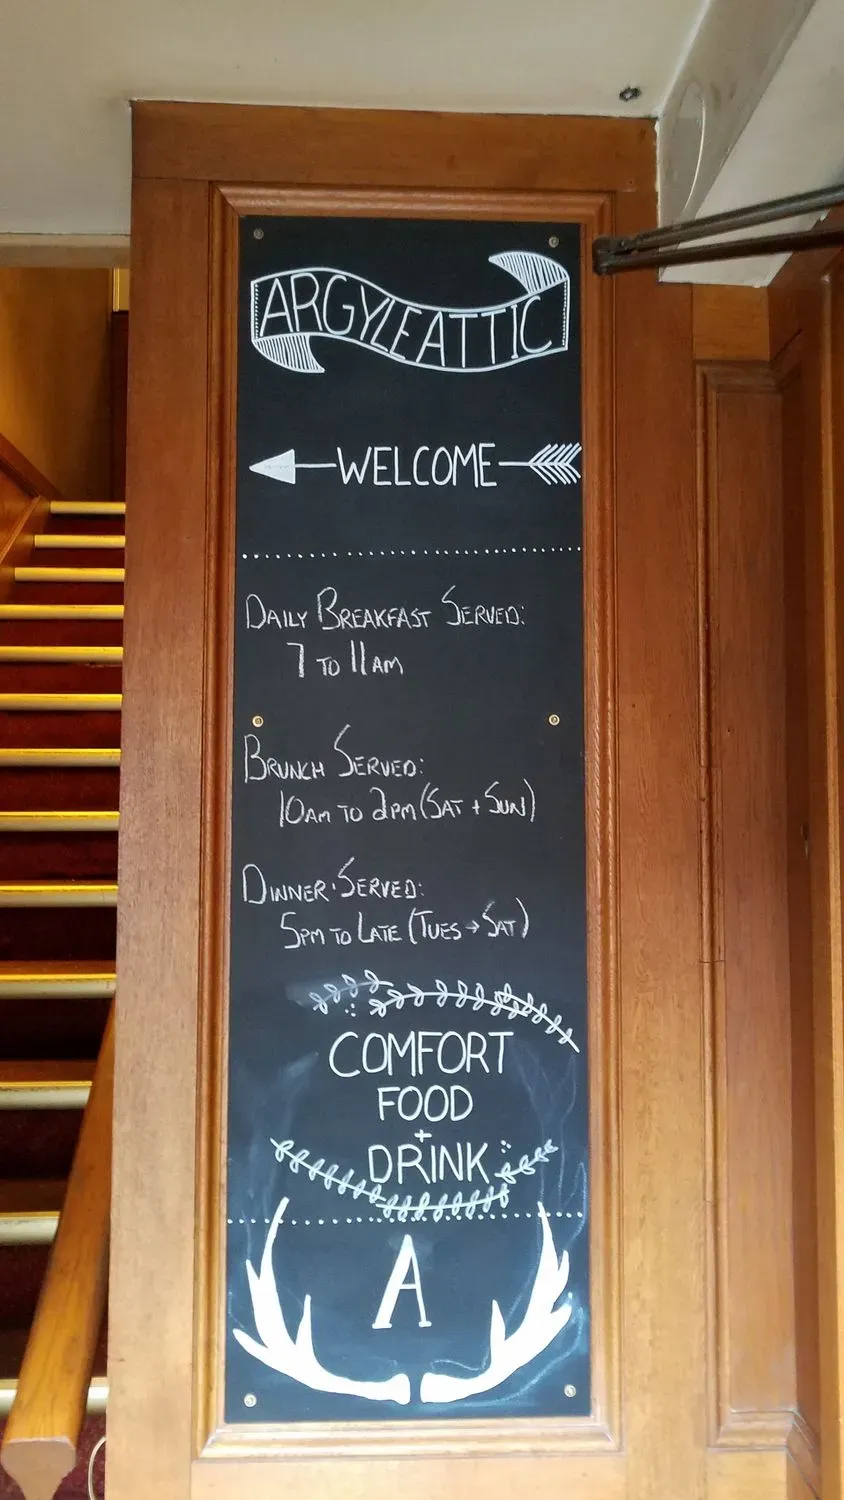 ARGYLE ATTIC
WELCOME
DAILY BREAKFAST SERVED:
7 TO 11AM
BRUNCH SERVED:
10AM TO 2PM (SAT + SUN)
DINNER SERVED:
5PM TO LATE (TUES → SAT)
COMFORT
FOOD
+
DRINK
A